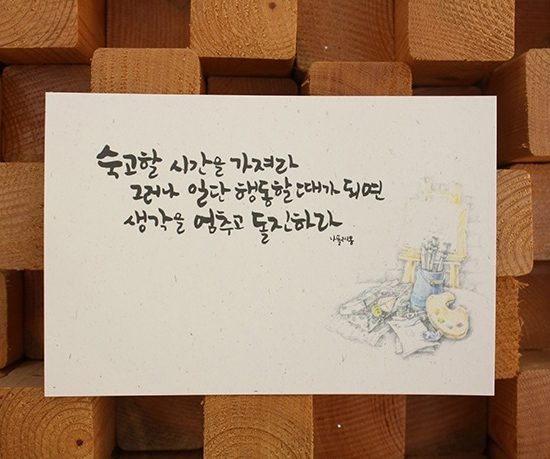 숙고할 시간을 가져라
그러나 일단 행동할 때가 되면
생각을 멈추고 돌진하라
나폴레옹